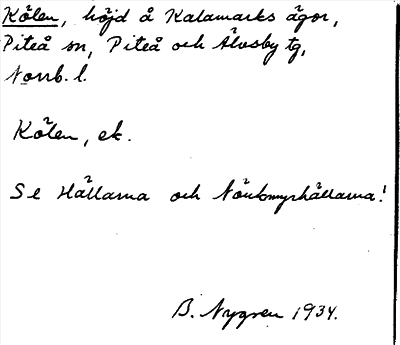 Kölen, höjd å Kalamarks ägor,
Piteå sn, Piteå och Älvsby tg,
Norrb. l.
Kölen, ek.
Se Hällarna och Nörkmyrhällarna!
B. Nygren 1934.